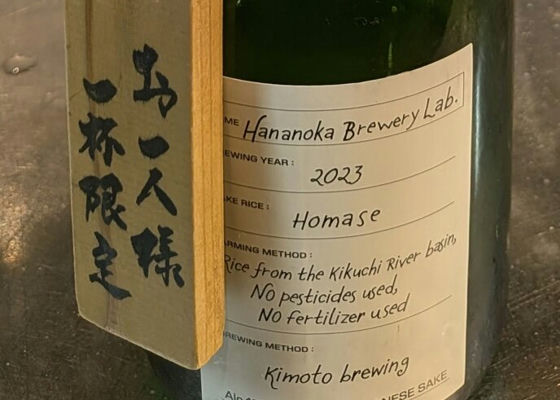 お一人様
一杯限定
ME Hananoka Brewery Lab.
EWING YEAR :
2023
KE RICE :
Homase
ARMING METHOD :
Rice from the Kikuchi River basin,
No pesticides used,
No fertilizer used
REWING METHOD :
Kimoto brewing
NESE SAKE